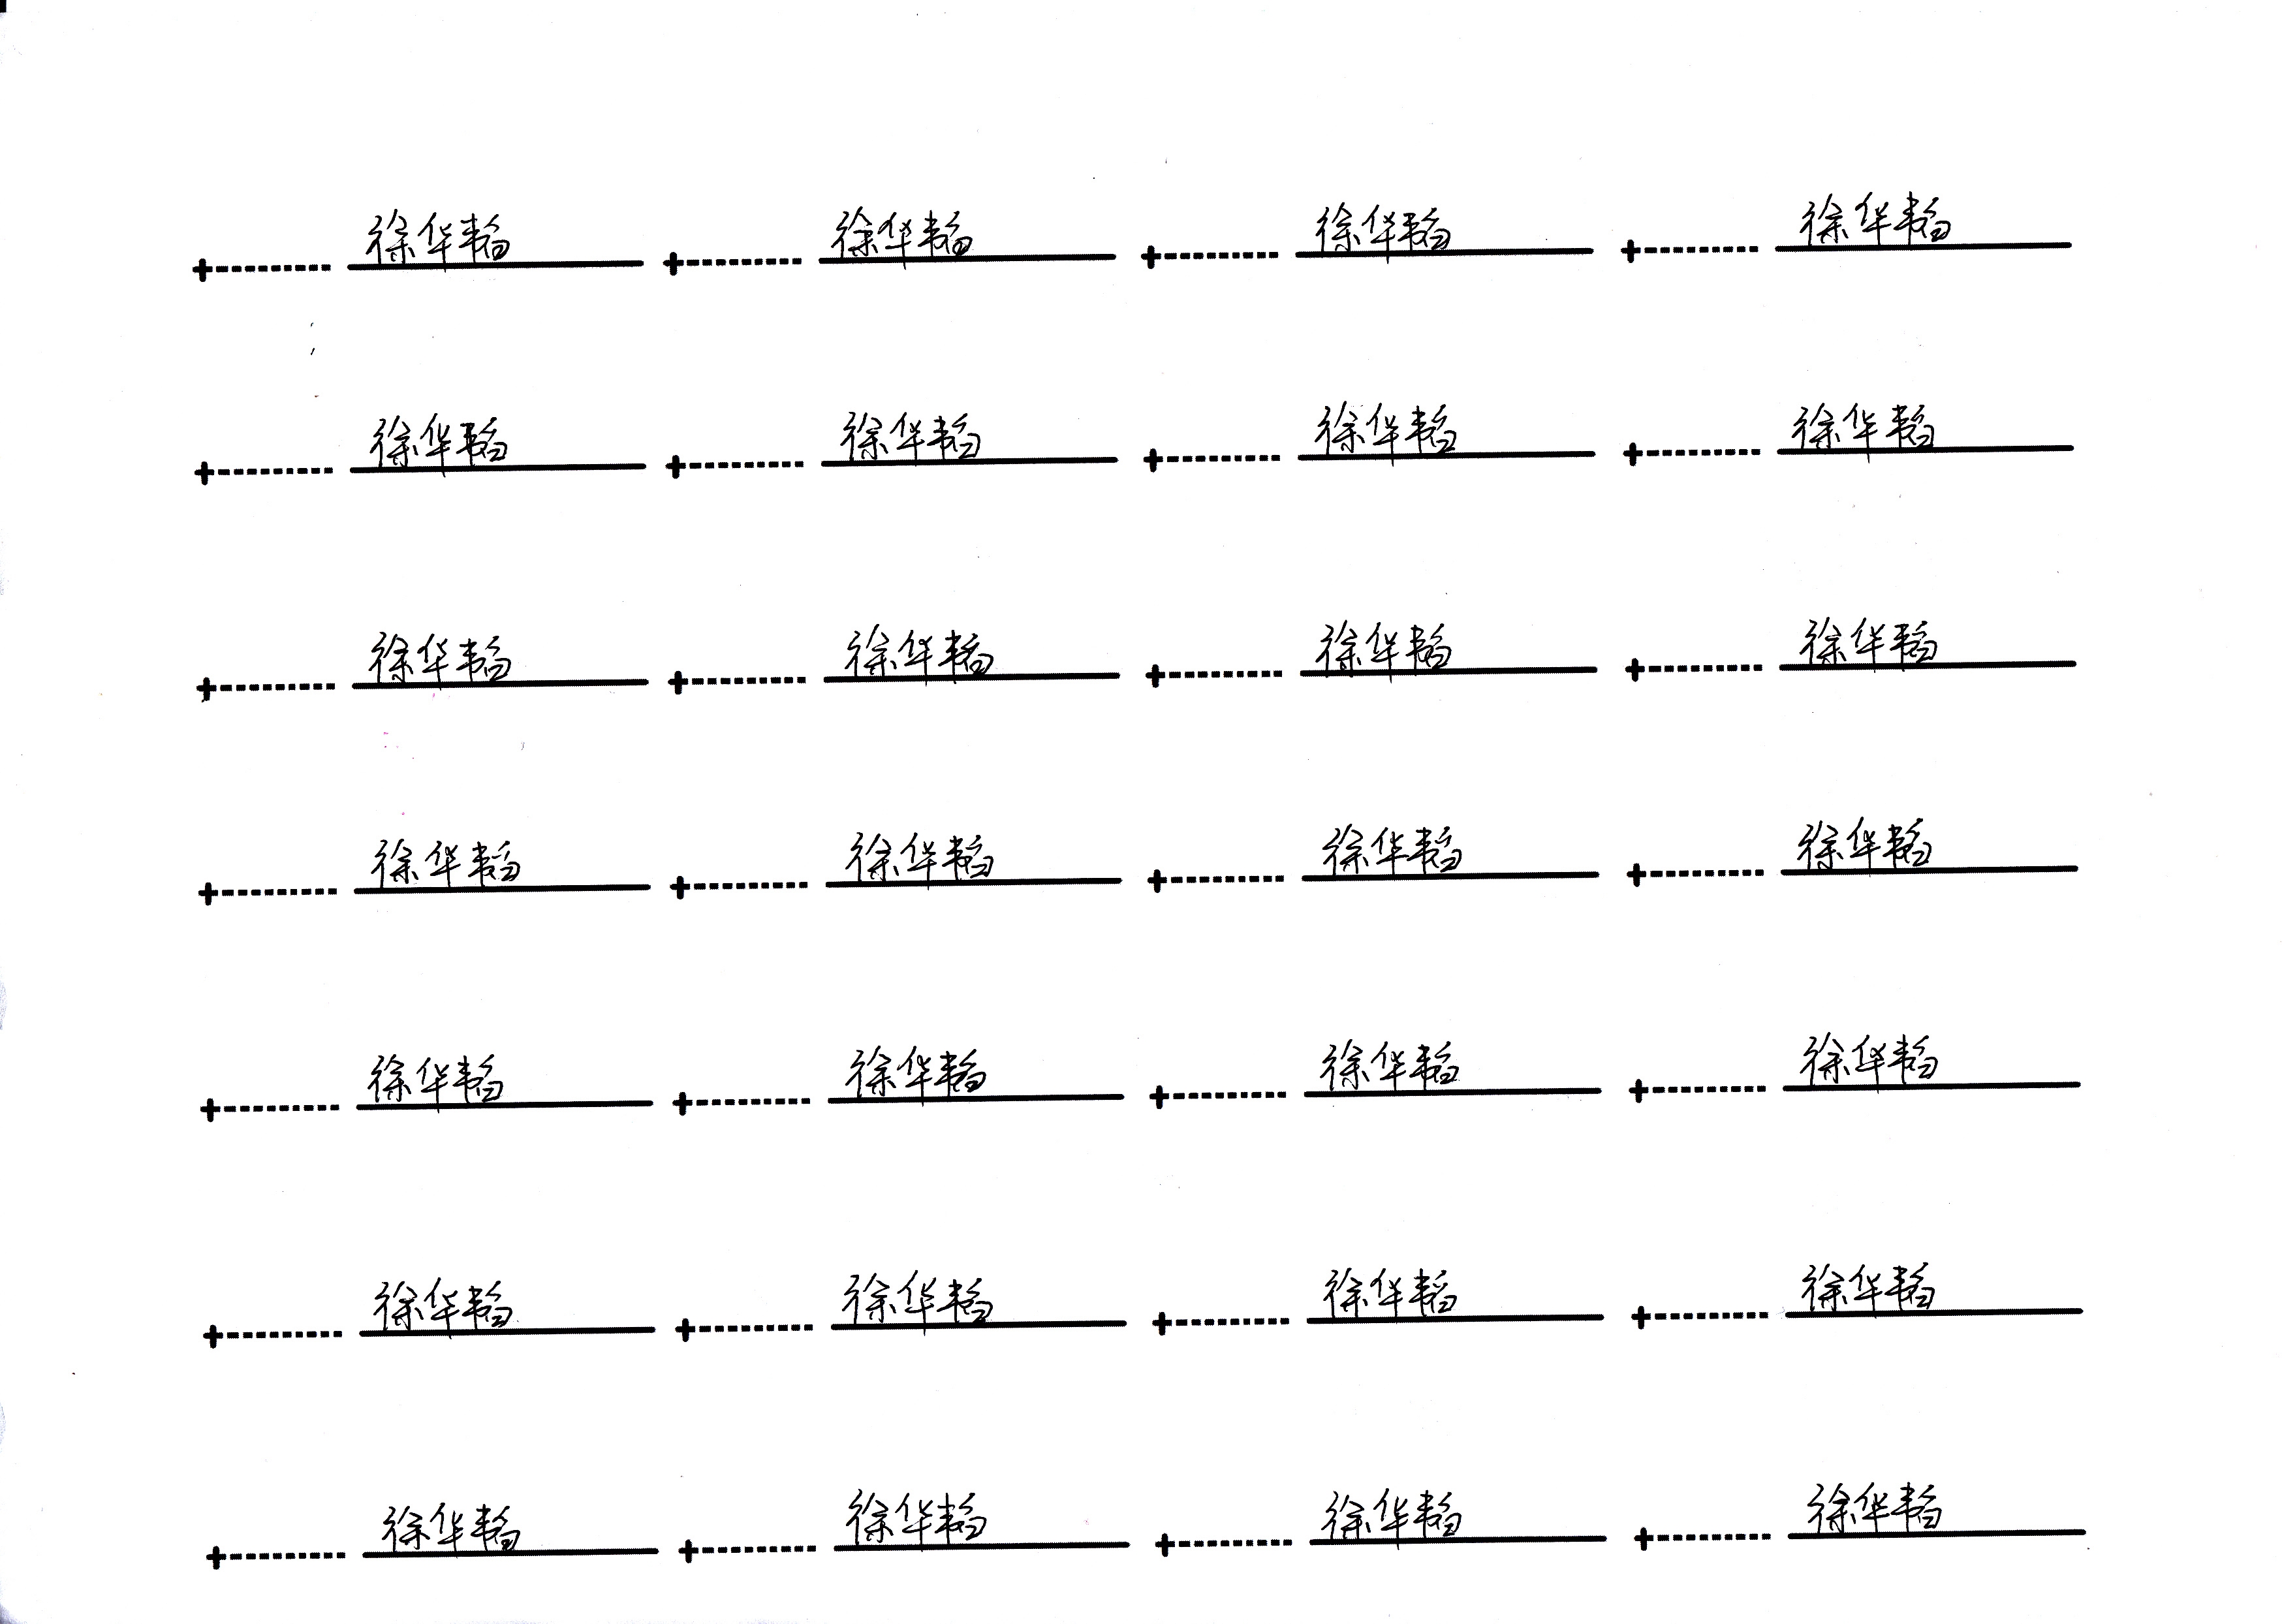 徐华韬 徐华韬 徐华韬 徐华韬
徐华韬 徐华韬 徐华韬 徐华韬
徐华韬 徐华韬 徐华韬 徐华韬
徐华韬 徐华韬 徐华韬 徐华韬
徐华韬 徐华韬 徐华韬 徐华韬
徐华韬 徐华韬 徐华韬 徐华韬
徐华韬 徐华韬 徐华韬 徐华韬